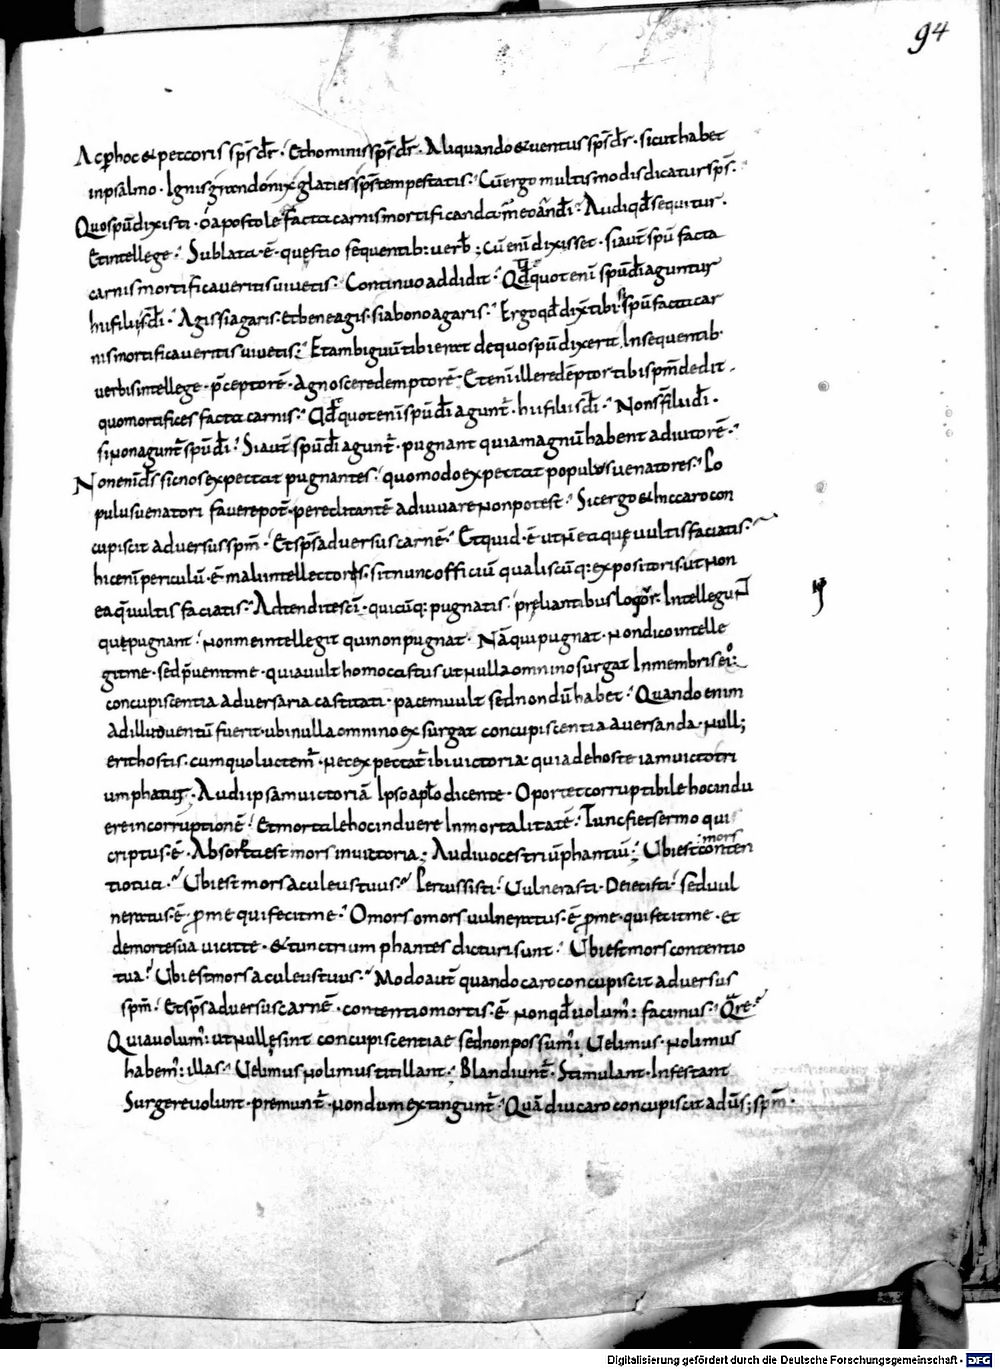 94
Ac ꝑ hoc & petcoris sp̄s dr̄ · Et hominis sp̄s dr̄ · Aliquando & uentus sp̄s dr̄ · sicut habet
in psalmo · Ignis grando nix glaties sp̄s tempestatis · Cū ergo multis modis dicatur sp̄s ·
Quo spū dixisti · o apostole facta carnis mortificanda · Audi qd̄ sequitur ·
Et intellege · Sublata · ē · questio sequentib: uerb; cū enī dixisset · si aut̄ spū facta
carnis mortificaueritis uiuetis · Continuo addidit · Qd̄quot enī spū dī aguntur
hi filii s̄ dī · Agis si agaris · Et bene agis · si a bono agaris · Ergo qd̄ dix̄ tibi · spū facta car
nis mortificaueritis uiuetis · Et ambiguū tibi erat de quo spū dixerit · In sequentib·
uerbis intellege · p̄ceptorē · agnosce redemptorē · Etenī ille redēptor tibi spm̄ dedit ·
quo mortifices facta carnis · Qd̄quot enī spū dī agunt̄ · hi filii s̄ dī · Non s̄ filii dī ·
si non agunt̄ spū dī · Si aut̄ spū dī agunt̄ · pugnant quia magnū habent adiutorē ·
Non enī ds̄ sic nos expectat pugnantes · quomodo expectat populus uenatores · Po
pulus uenatori fauere pot̄ · pereclitantē adiuuare non potest · Sic ergo & hic caro con
cupiscit aduersus spm̄ · Et sp̄s aduersus carnē · Et quid · ē ut n̄ ea que uultis faciatis ·
hic enī periculū · ē mali intellectoris · sit nunc officiū qualiscūq: expositoris · ut non
ea q̄ uultis faciatis · Adtendite scī · quicūq: pugnatis · preliantibus loquor · Intellegunt
que pugnant · non me intellegit qui non pugnat · Nā qui pugnat · non dico intelle
git me · sed p̄uenit me · quia uult homo castus ut nulla omnino surgat In membris ei:
concupiscentia aduersaria castitati · pacem uult sed nondū habet · Quando enim
ad illud uentū fuerit · ubi nulla omnino exsurgat concupiscentia auersanda · null;
erit hostis · cum quo luctem̄ · nec expectat̄ ibi uictoria · quia de hoste iam uicto tri
umphatur · Audi ipsam uictoriā Ipso aplo dicente · Oportet corruptibile hoc indu
ere incorruptionē · Et mortale hoc induere Inmortalitatē · Tunc fiet sermo qui
criptus · ē · Absorta est mors in uictoria · Audi uoces triūphantiū · Ubi est mors conten
tio tua · Ubi est mors aculeus tuus · Percussisti · Uulnerasti · Deiecisti · sed uul
neratus · ē ꝓ me qui fecit me · O mors o mors uulneratus · ē ꝓ me · qui fecit me · et
de morte sua uicit te · & tunc triumphantes dicturi sunt · Ubi est mors contentio
tua · Ubi est mors aculeus tuus · Modo aut̄ quando caro concupiscit aduersus
spm̄ · Et sp̄s aduersus carnē · contentio mortis · ē non qd̄ uolum: facimus · Qre ·
Quia uolum: ut nulle sint concupiscentiae sed non possum; Uelimus · nolimus
habem: illas · Uelimus nolimus titillant · Blandiunt̄ · Stimulant · Infestant
Surgere uolunt · premunt̄ · nondum extingunt̄ · Quādiu caro concupiscit aduers; spm̄ ·
Digitalisierung gefördert durch die Deutsche Forschungsgemeinschaft - DFG